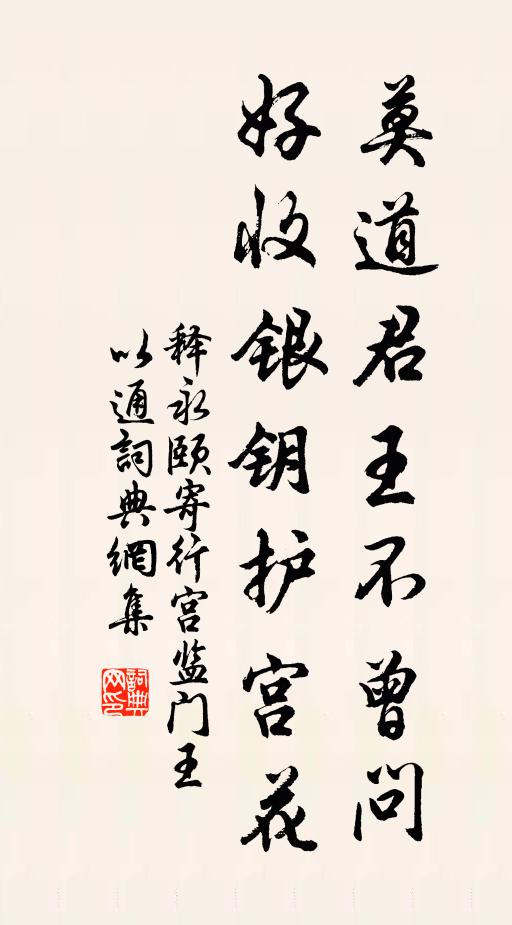 莫道君王不曾问
好收银钥护宫花
释永颐寄行宫监门王
以通词典網集
詞典网印